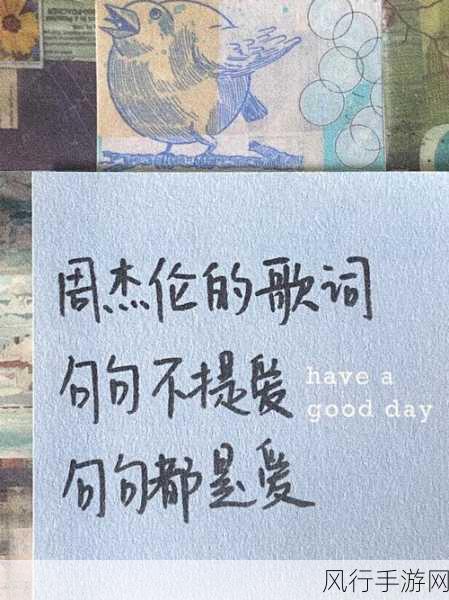 周杰伦的歌词
句句不提爱
have a
good day
句句都是爱
风行手游网